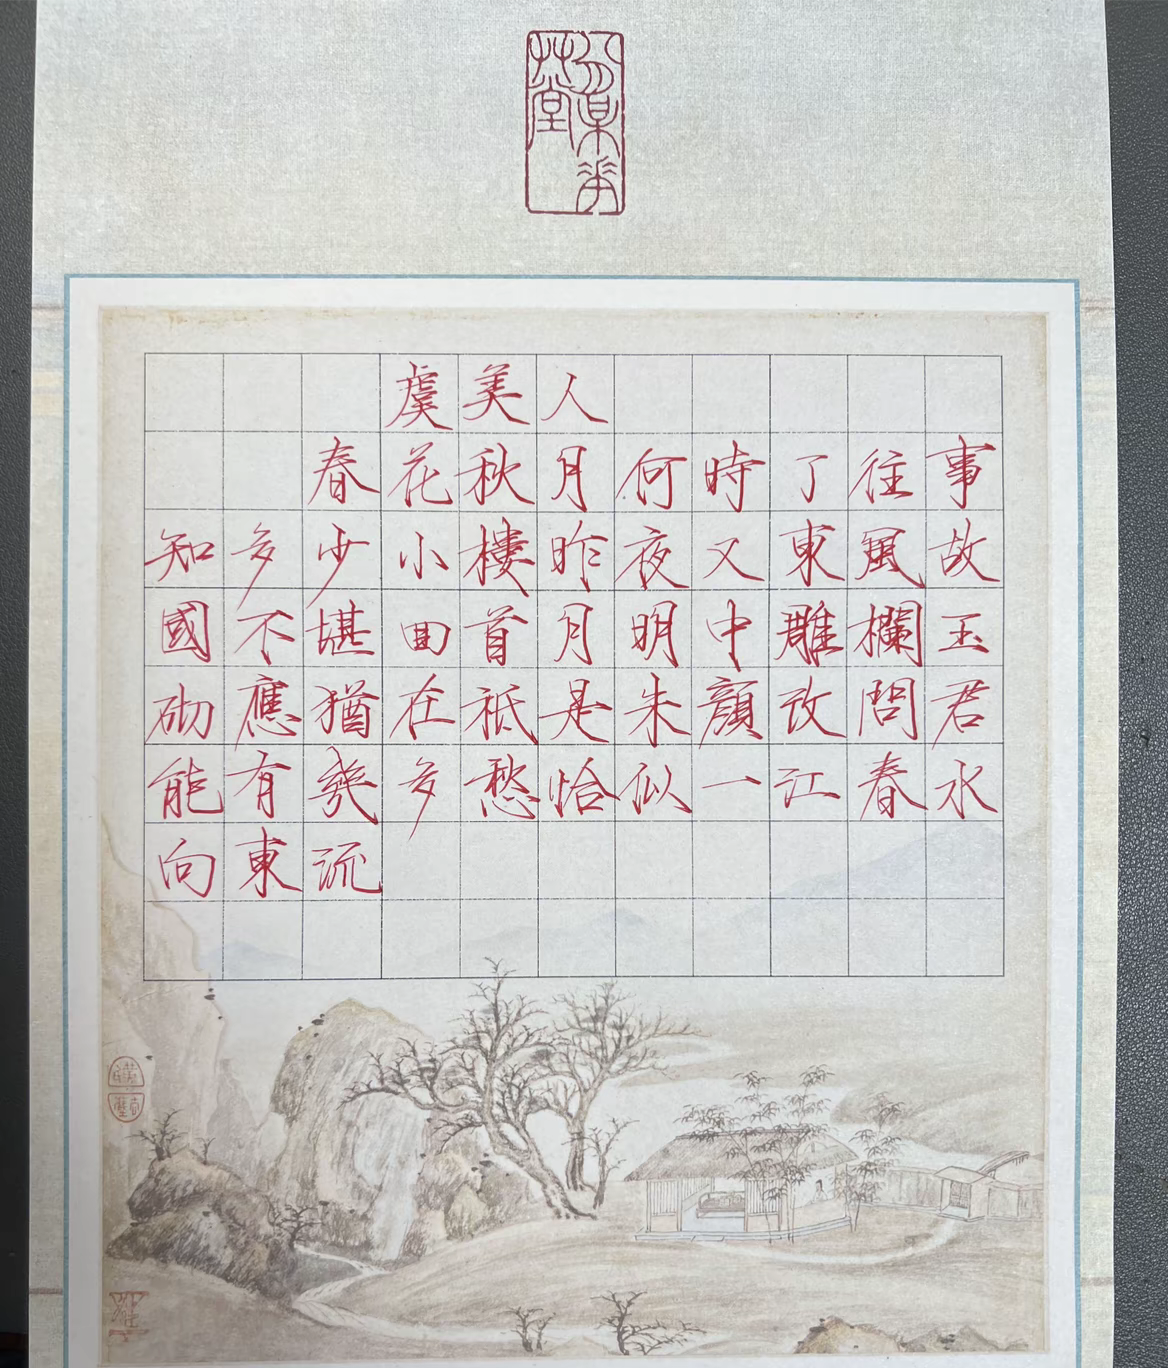 虞美人
春花秋月何時了往事
知多少小樓昨夜又東風故
國不堪回首月明中雕欄玉
砌應猶在祗是朱顏改問君
能有幾多愁恰似一江春水
向東流